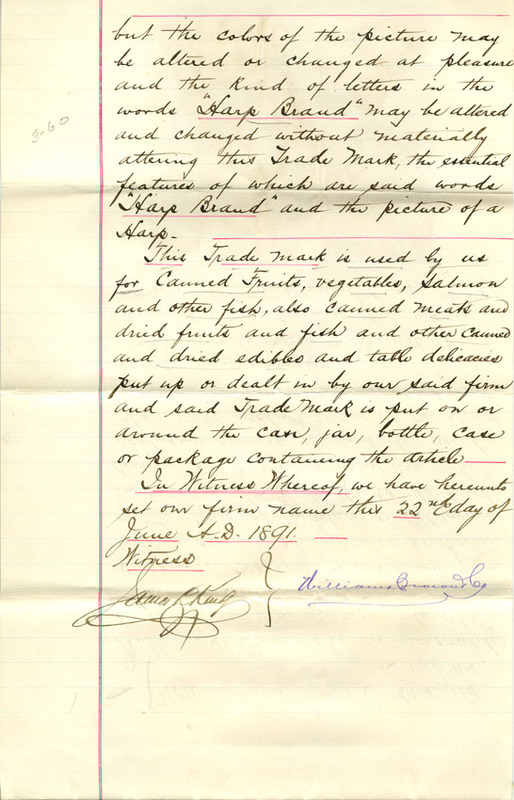 but the colors of the picture may
be altered or changed at pleasure
and the kind of letters in the
words "Harp Brand" may be altered
and changed without materially
altering this Trade Mark, the essential
features of which are said words
"Harp Brand" and the picture of a
Harp.-
This Trade Mark is used by us
for Canned Fruits, vegetables, Salmon
and other fish, also canned meats and
dried fruits and fish and other canned
and dried edibles and table delicacies
put up or dealt in by our said firm
and said Trade Mark is put on or
around the can, jar, bottle, case
or package containing the article
In Witness Whereof, we have hereunto
set our firm name this 22nd day of
June A.D. 1891.
Witness
Williams Co